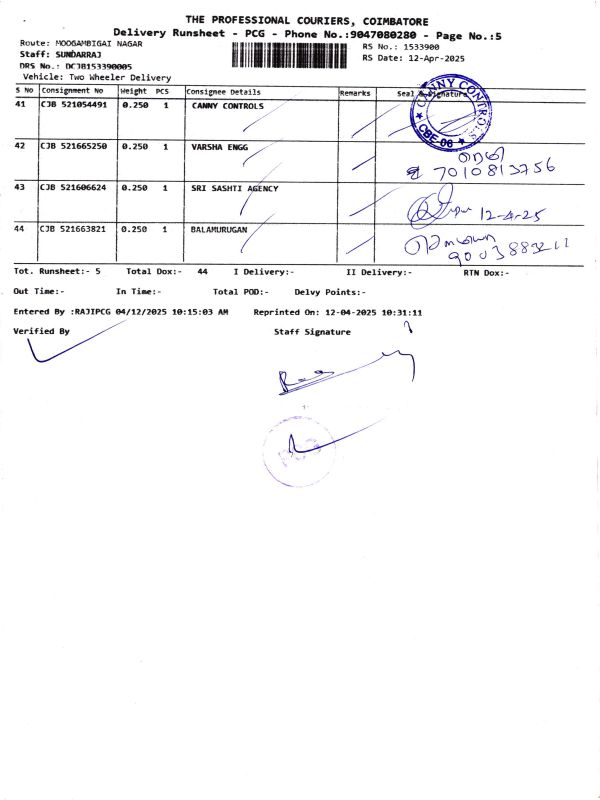 THE PROFESSIONAL COURIERS, COIMBATORE
Delivery Runsheet - PCG - Phone No.:9047080280 - Page No.:5
Route: MOOGAMBIGAI NAGAR
RS No.: 1533900
Staff: SUNDARRAJ
RS Date: 12-Apr-2025
DRS No.: DCJB153390005
Vehicle: Two Wheeler Delivery
S No Consignment No Weight PCS Consignee Details Remarks Seal & Signature
41 CJB 521054491 0.250 1 CANNY CONTROLS
CANNY CONTROLS
CBE-06
42 CJB 521665250 0.250 1 VARSHA ENGG
7010813756
43 CJB 521606624 0.250 1 SRI SASHTI AGENCY
12-4-25
44 CJB 521663821 0.250 1 BALAMURUGAN
Tot. Runsheet:- 5 Total Dox:- 44 I Delivery:- II Delivery:- RTN Dox:-
Out Time:- In Time:- Total POD:- Delvy Points:-
Entered By :RAJIPCG 04/12/2025 10:15:03 AM Reprinted On: 12-04-2025 10:31:11
Verified By Staff Signature